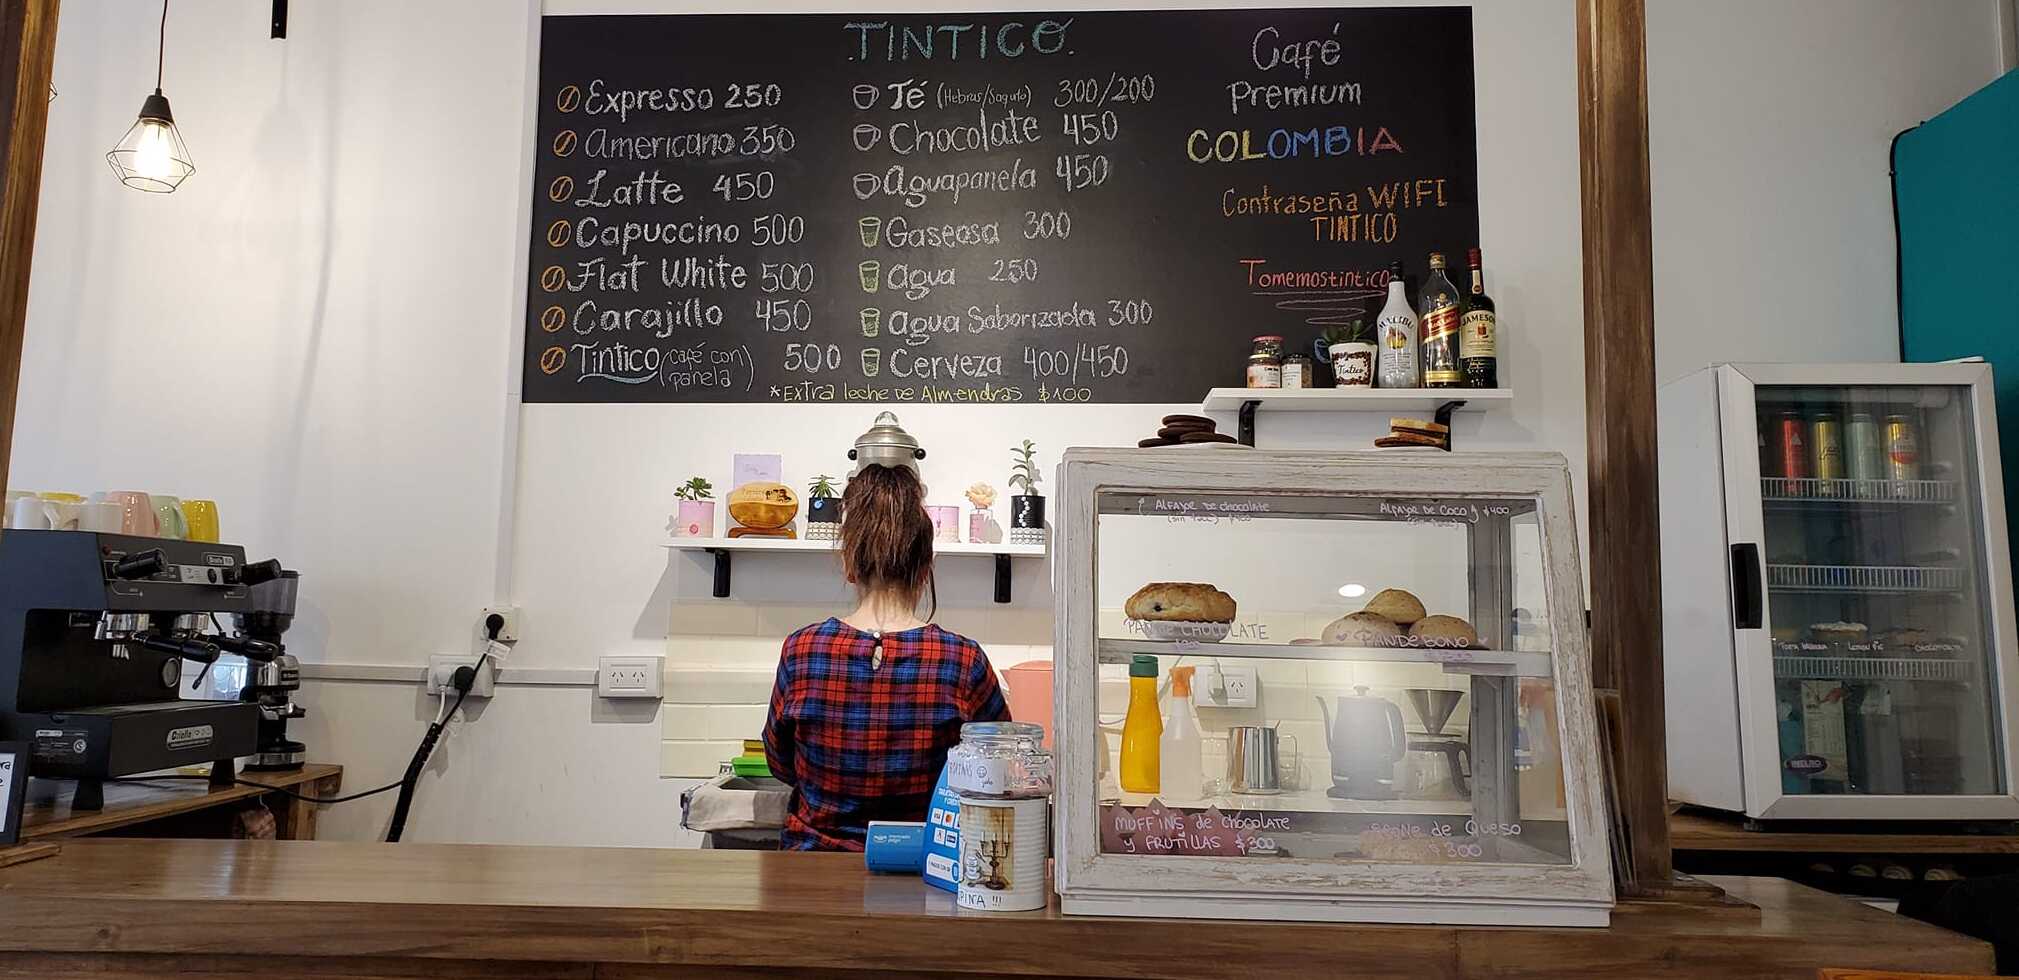 TINTICO.
Expresso 250
Americano 350
Latte 450
Capuccino 500
Flat White 500
Carajillo 450
Tintico (café con panela) 500
Té (Hebras/Saquito) 300/200
Chocolate 450
Aguapanela 450
Gaseosa 300
Agua 250
Agua Saborizada 300
Cerveza 400/450
*Extra leche de Almendras $100
Café
Premium
COLOMBIA
Contraseña WIFI
TINTICO
Tomemostintico
MALIBU
JAMESON
Tintico
ALFAJOR DE chocolate
ALFAJOR DE COCO $400
PAN DE CHOCOLATE
PAN DE BONO
MUFFINS de chocolate
y FRUTILLAS $300
de Queso
$300
LEMON PIE